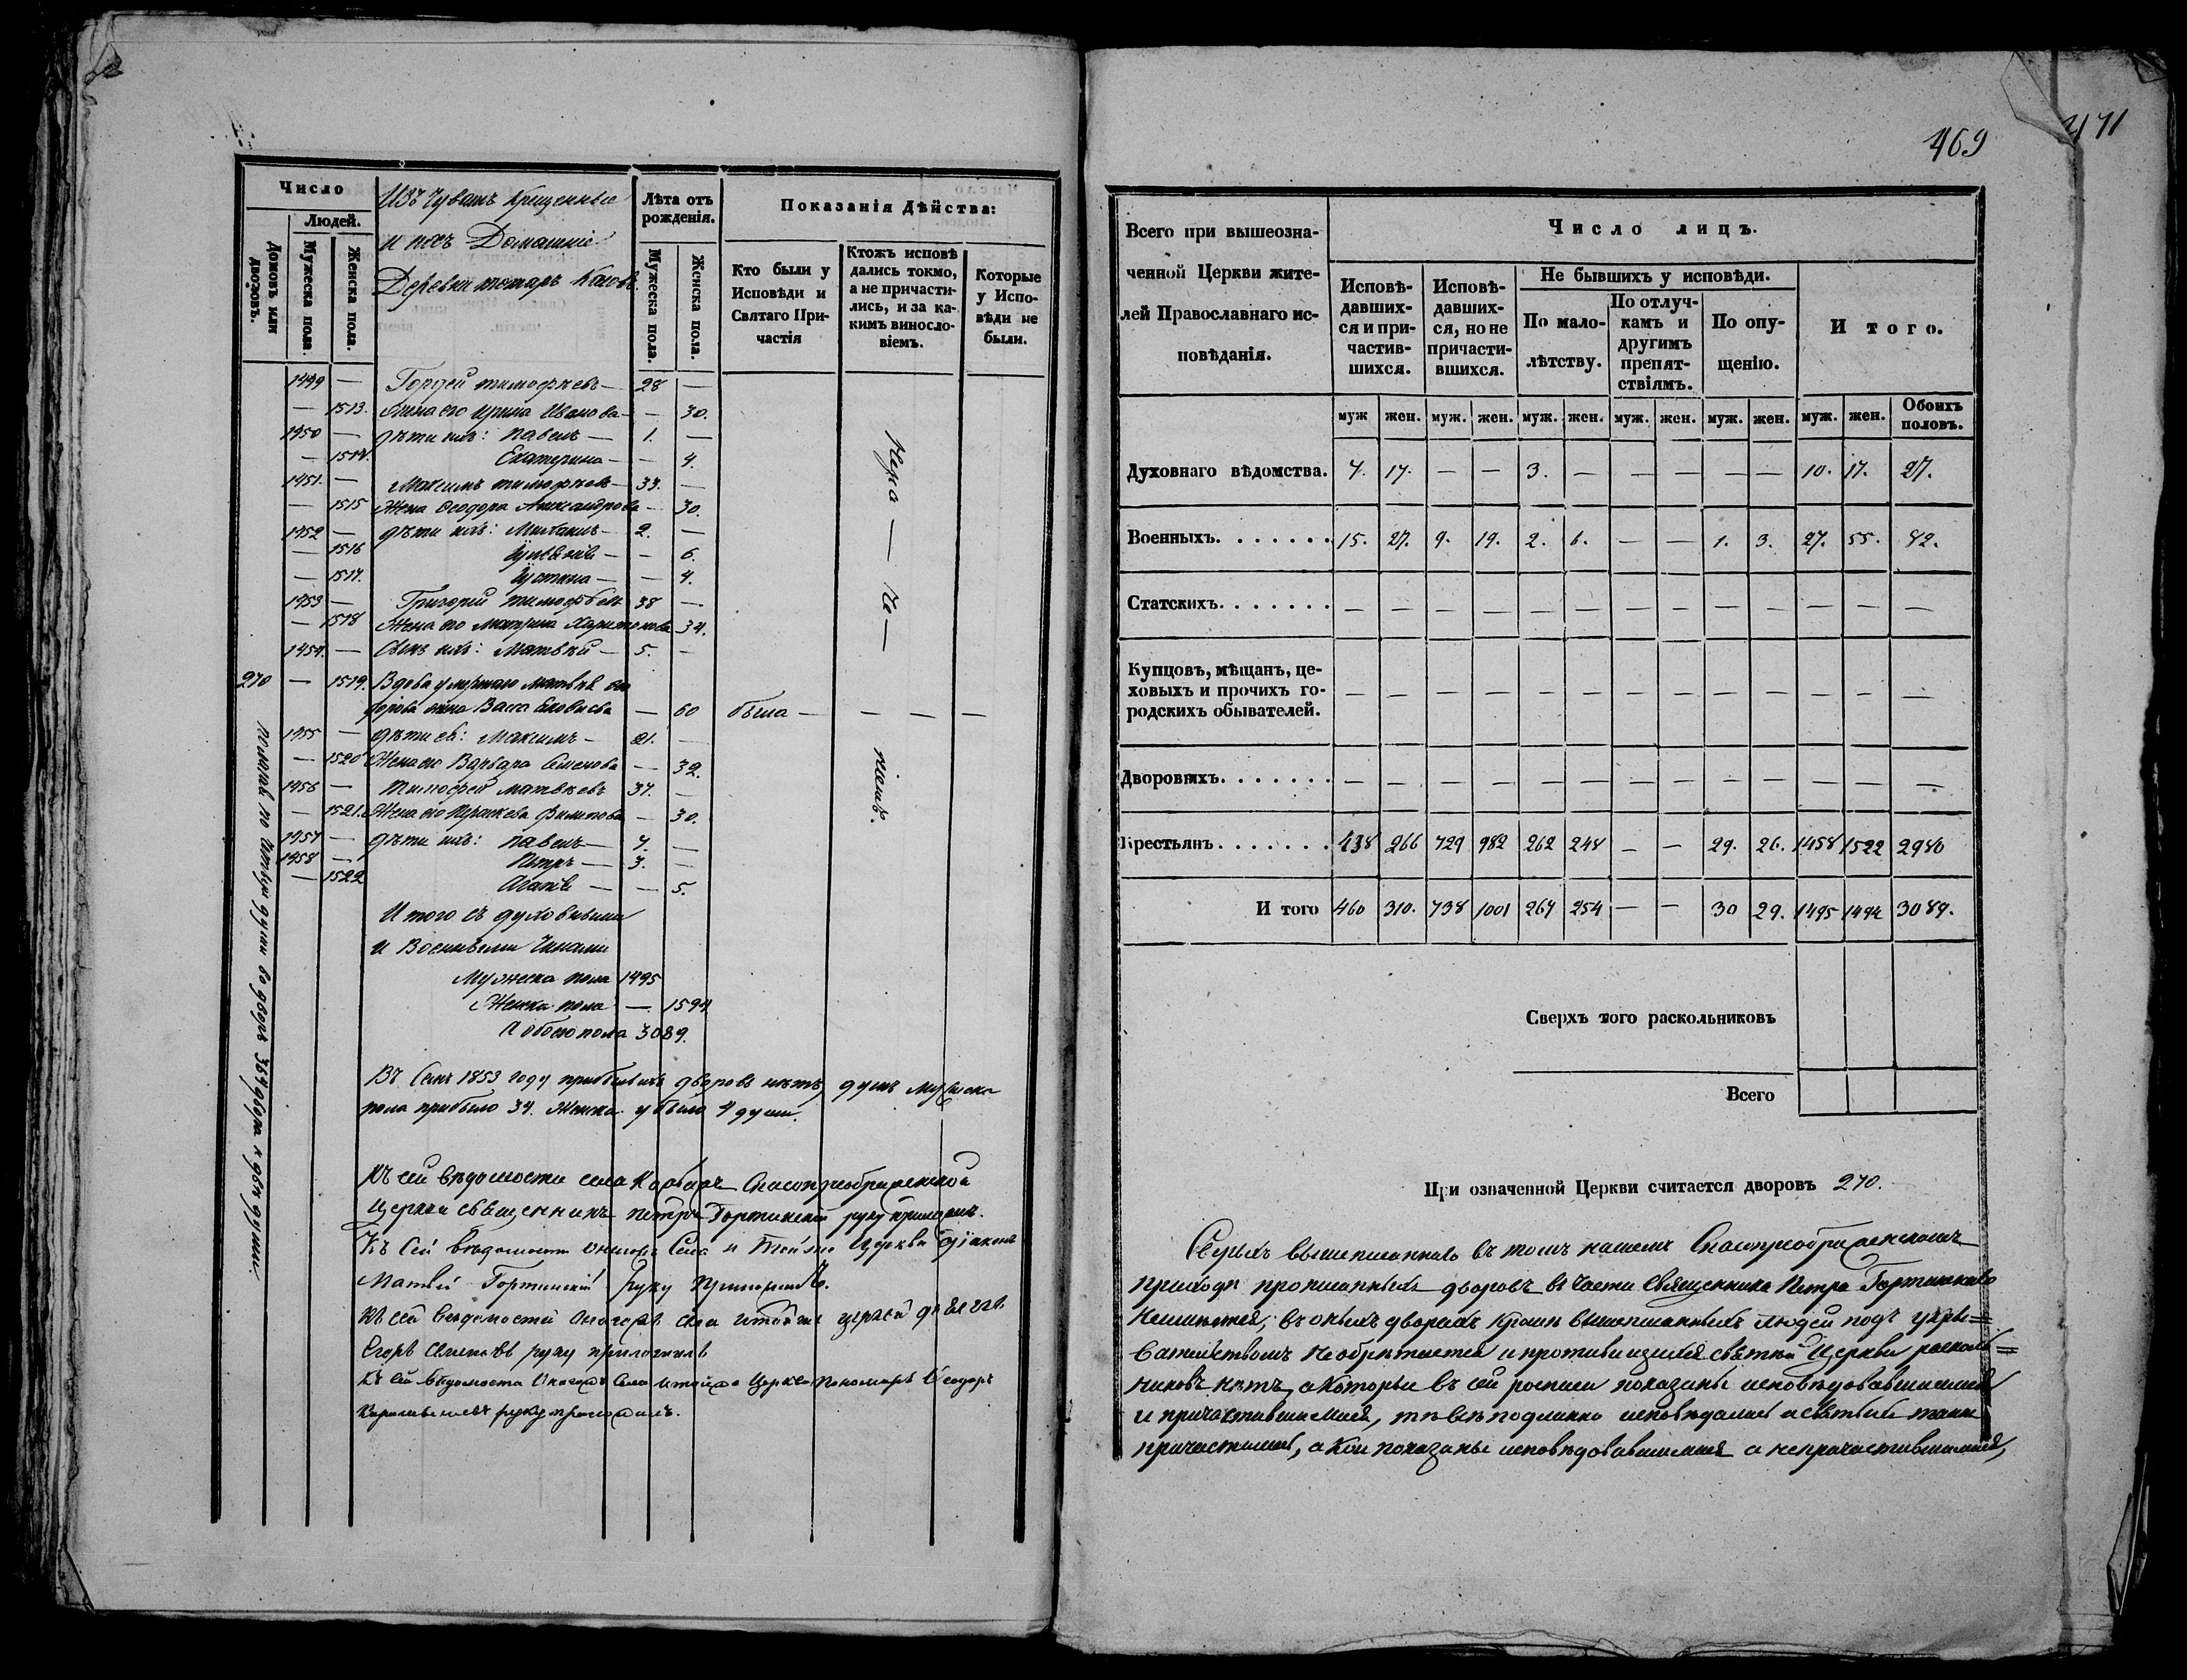 469
471
Число
Людей.
Домовъ или дворовъ.
Мужеска пола.
Женска пола.
Изъ Чувашъ Крещенные
и ихъ Домашніе
Деревни
Лѣта отъ рожденія.
Мужеска пола.
Женска пола.
Показанія Дѣйства:
Кто были у Исповѣди и Святаго Причастія
Ктожъ исповѣдались токмо, а не причастились, и за какимъ винословіемъ.
Которые у Исповѣди не были.
1449 — Гордей Тимофѣевъ — 28 —
— 1513. Жена его Ирина Иванова — — 30.
1450 — дѣти ихъ: Павелъ — 1. —
— 1514. Екатерина — — 4.
1451. — Максимъ Тимофѣевъ — 33. —
— 1515 Жена Ѳеодора Александрова — 30.
1452 — дѣти ихъ: Михаилъ — 2. —
— 1516 — — 6.
— 1517. Устина — — 4.
1453 — Григорий Тимофѣевъ 38 —
— 1518 Жена его Матрина Харитонова 34.
1454. — Сынъ ихъ: Матвѣй — 5. —
270 — 1519. Вдова умершаго Матвѣя
жена Васса — 60 была — — — —
1455 — дѣти ея: Максимъ — 21. —
— 1520 Жена его Варвара Семенова — 32.
1456 — Тимофей Матвѣевъ 37. —
— 1521. Жена его Парскева Филипова — 30.
1457 — дѣти ихъ: Павелъ — 7. —
1458 — Петръ — 3. —
— 1522 Агапія — — 5.
И того съ духовными
и Военными Чинами
Мужеска пола 1495
Женска пола — 1594
А обоего пола 3089.
Въ Семъ 1853 году прибылыхъ дворовъ нѣтъ, душъ мужска
пола прибыло 34. Женска убыло 4 души.
Къ сей вѣдомости села Спасопреображенской
церкви священникъ Петръ Гортинскій руку приложилъ.
Къ Сей вѣдомости Оногожъ Села и Тойже Церкви діаконъ
Матвѣй Гортинскій руку приложилъ.
Къ сей вѣдомости оногожъ села и тойже церкви
Егоръ Семеновъ руку приложилъ
Къ сей вѣдомости Оногожъ Села и тойже Церкви пономарь Ѳеодоръ
руку приложилъ.
Всего при вышеозначенной Церкви жителей Православнаго исповѣданія.
Число лицъ.
Исповѣдавшихся и причастившихся.
Исповѣдавшихся, но не причастившихся.
Не бывшихъ у исповѣди.
По малолѣтству.
По отлучкамъ и другимъ препятствіямъ.
По опущенію.
И того.
муж жен. муж. жен. муж. жен. муж. жен. муж. жен. муж. жен. Обоихъ половъ.
Духовнаго вѣдомства. 7. 17. — — 3. — — — — — 10. 17. 27.
Военныхъ. 15. 27. 9. 19. 2. 6. — — 1. 3. 27. 55. 82.
Статскихъ. — — — — — — — — — — — — —
Купцовъ, мѣщанъ, цеховыхъ и прочихъ городскихъ обывателей. — — — — — — — — — — — — —
Дворовыхъ. — — — — — — — — — — — — —
Крестьянъ. 438 266 729 982 262 248 — — 29. 26. 1458 1522 2980
И того 460 310. 738 1001 267 254 — — 30 29. 1495 1594 3089.
Сверхъ того раскольниковъ
Всего
При означенной Церкви считается дворовъ 270.
вышеписаннаго въ томъ нашемъ Спасопреображенскомъ
приходѣ прописанныхъ дворовъ въ части Священника Петра Гортинскаго
въ оныхъ дворахъ кромѣ вышеписанныхъ людей подъ укры=
вательствомъ не обрѣтается и противящихся святѣй Церкви расколь=
никовъ нѣтъ, а которые въ сей росписи показаны исповѣдовавшимися
и причастившимися, тѣ всѣ подлинно исповѣдались и святыхъ таинъ
причастились, а кои показаны исповѣдовавшимися а непричастившимися,